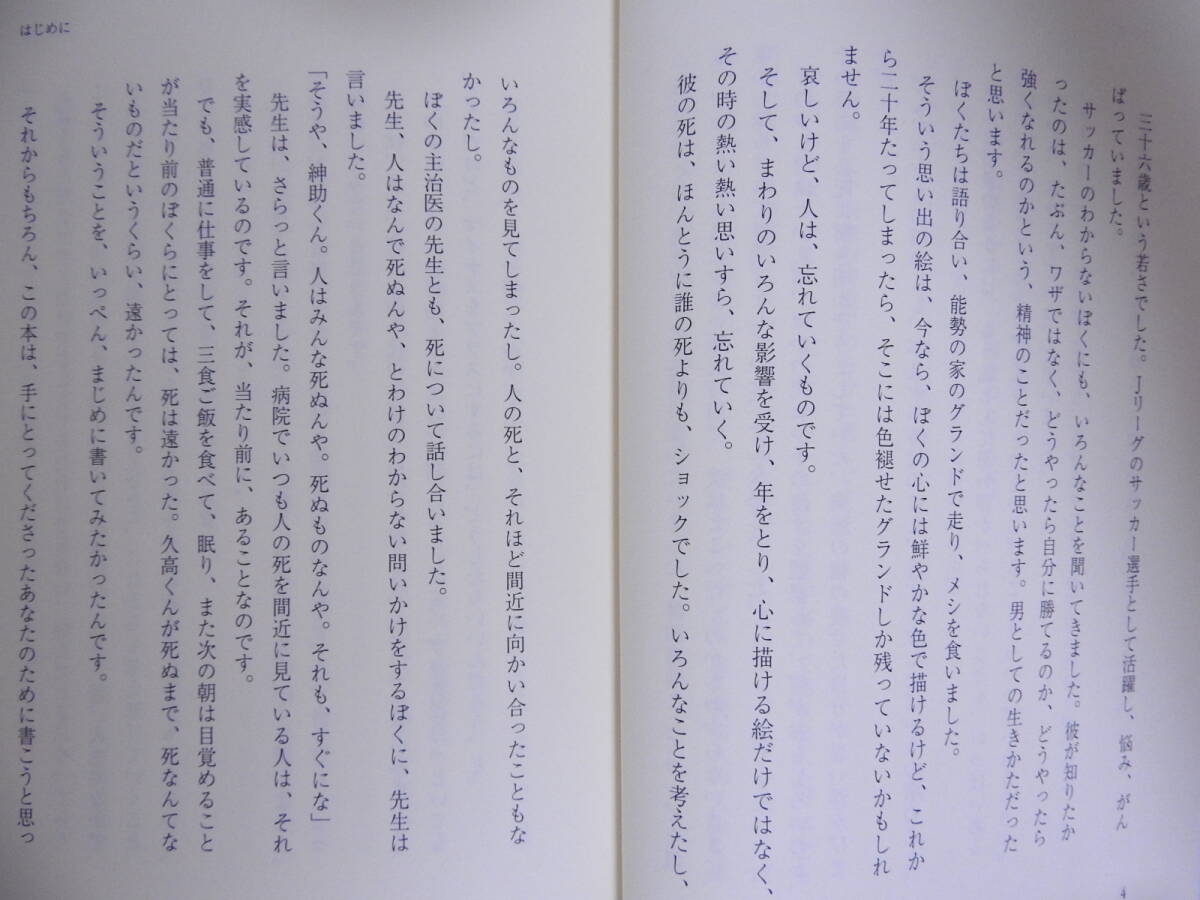 三十六歳という若さでした。Jリーグのサッカー選手として活躍し、悩み、がん
ばっていました。
サッカーのわからないぼくにも、いろんなことを聞いてきました。彼が知りたか
ったのは、たぶん、ワザではなく、どうやったら自分に勝てるのか、どうやったら
強くなれるのかという、精神のことだったと思います。男としての生きかただった
と思います。
ぼくたちは語り合い、能勢の家のグランドで走り、メシを食いました。
そういう思い出の絵は、今なら、ぼくの心には鮮やかな色で描けるけど、これか
ら二十年たってしまったら、そこには色褪せたグランドしか残っていないかもしれ
ません。
哀しいけど、人は、忘れていくものです。
そして、まわりのいろんな影響を受け、年をとり、心に描ける絵だけではなく、
その時の熱い熱い思いすら、忘れていく。
彼の死は、ほんとうに誰の死よりも、ショックでした。いろんなことを考えたし、
4
はじめに
いろんなものを見てしまったし。人の死と、それほど間近に向かい合ったこともな
かったし。
ぼくの主治医の先生とも、死について話し合いました。
先生、人はなんで死ぬんや、とわけのわからない問いかけをするぼくに、先生は
言いました。
「そうや、紳助くん。人はみんな死ぬんや。死ぬものなんや。それも、すぐにな」
先生は、さらっと言いました。病院でいつも人の死を間近に見ている人は、それ
を実感しているのです。それが、当たり前に、あることなのです。
でも、普通に仕事をして、三食ご飯を食べて、眠り、また次の朝は目覚めること
が当たり前のぼくらにとっては、死は遠かった。久高くんが死ぬまで、死なんてな
いものだというくらい、遠かったんです。
そういうことを、いっぺん、まじめに書いてみたかったんです。
それからもちろん、この本は、手にとってくださったあなたのために書こうと思っ